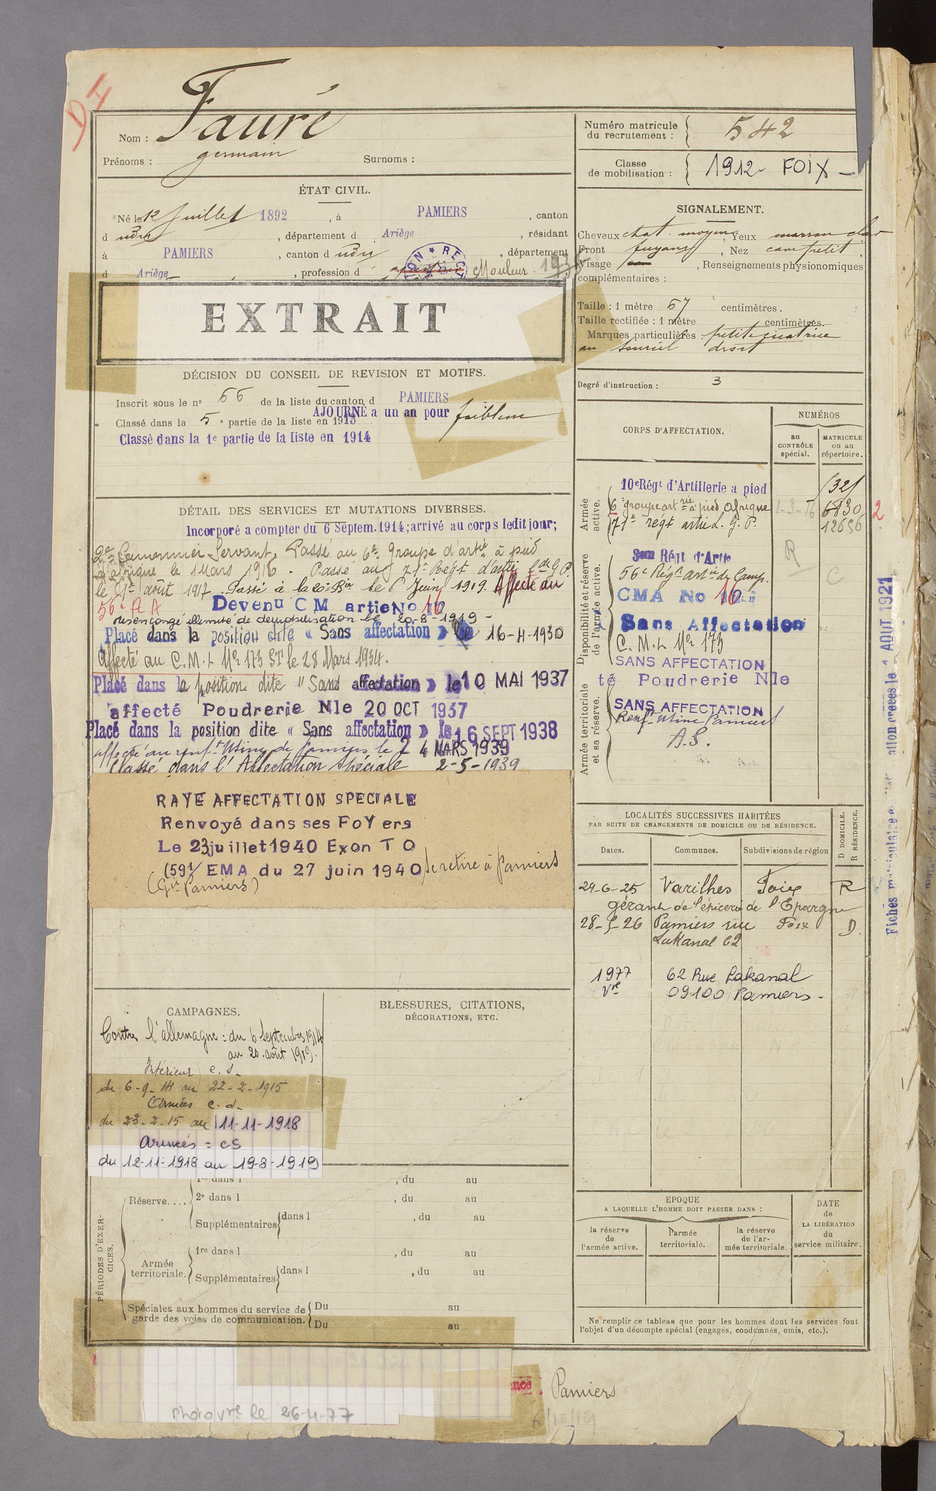 DI
Nom : Fauré
Prénoms : germain Surnoms :
Numéro matricule du recrutement : 542
Classe de mobilisation : 1912 - FOIX -
ÉTAT CIVIL.
Né le 12 Juillet 1892, à PAMIERS, canton
d udit, département d Ariège, résidant
à PAMIERS, canton d udit, département
d Ariège, profession d Mouleur
EXTRAIT
DÉCISION DU CONSEIL DE REVISION ET MOTIFS.
Inscrit sous le n° 66 de la liste du canton d PAMIERS
Classé dans la 5e partie de la liste en 1913 AJOURNÉ a un an pour faiblesse
Classé dans la 1e partie de la liste en 1914
SIGNALEMENT.
Cheveux chat. moyens, Yeux marron clair
Front fuyant, Nez
Visage , Renseignements physionomiques
complémentaires :
Taille : 1 mètre 67 centimètres.
Taille rectifiée : 1 mètre centimètres.
Marques particulières : petite cicatrice
au sourcil droit
Degré d'instruction : 3
DÉTAIL DES SERVICES ET MUTATIONS DIVERSES.
Incorporé a compter du 6 Septem. 1914; arrivé au corps ledit jour;
2e Canonnier Servant. Passé au 6e groupe d'artie à pied
d'Afrique le 1 Mars 1916. Passé au 71e Régt d'artie
le 1er août 1917. Passé à la Bie le 6 Juin 1919. Affecté du
56e RA Devenu CM artie No 16
en congé illimité de démobilisation le 20-8-1919 -
Placé dans la position dite « Sans affectation » le 16-4-1930
Affecté au C.M.L No 173 ST le 28 Mars 1934.
Placé dans la position dite " Sans affectation » le 10 MAI 1937
affecté Poudrerie Nle 20 OCT 1937
Placé dans la position dite « Sans affectation » le 16 SEPT 1938
affecté au renft Usine de Pamiers le 24 MARS 1939
Classé dans l'Affectation Spéciale 2-5-1939
RAYE AFFECTATION SPECIALE
Renvoyé dans ses FoYers
Le 23 juillet 1940 Ex on T O
(591/ EMA du 27 juin 1940 se retire à Pamiers
(Gt Pamiers)
CORPS D'AFFECTATION.
NUMÉROS
au CONTRÔLE spécial.
MATRICULE ou au répertoire.
Armée active.
10e Régt d'Artillerie a pied 1321
6e groupe artrie à pied Afrique 1-3-16 6830
71e régt artie L. G. P. 12656
2
R
C
Disponibilité et réserve de l'armée active.
56e Régt artie de Camp.
CMA No 16
Sans Affectation
C. M. L No 173
SANS AFFECTATION
té Poudrerie Nle
Armée territoriale et sa réserve.
SANS AFFECTATION
Renft Usine Pamiers
A.S.
LOCALITÉS SUCCESSIVES HABITÉES
PAR SUITE DE CHANGEMENTS DE DOMICILE OU DE RÉSIDENCE.
D DOMICILE. R RÉSIDENCE.
Dates. Communes. Subdivisions de région
24-6-25 Varilhes Foix R
gérant de l'épicerie de l'Epargne
28-5-26 Pamiers rue Foix D.
Lakanal 62
1977 62 Rue Lakanal
09100 Pamiers -
CAMPAGNES.
Contre l'allemagne : du 6 Septembre 1914
au 20 août 1919.
Intérieur c. s.
du 6-9-14 au 22-2-1915
Armées c. d.
du 23-2-15 au 11-11-1918
Armées = CS
du 12-11-1918 au 19-8-1919
BLESSURES, CITATIONS,
DÉCORATIONS, ETC.
PÉRIODES D'EXERCICES.
Réserve....
1re dans l , du au
2e dans l , du au
Supplémentaires dans l , du au
Armée territoriale.
1re dans l , du au
Supplémentaires dans l , du au
Spéciales aux hommes du service de garde des voies de communication.
Du au
Du au
EPOQUE
A LAQUELLE L'HOMME DOIT PASSER DANS :
la réserve de l'armée active.
l'armée territoriale.
la réserve de l'armée territoriale.
DATE de LA LIBÉRATION du service militaire.
Ne remplir ce tableau que pour les hommes dont les services font
l'objet d'un décompte spécial (engagés, condamnés, omis, etc.).
Pamiers
le 26-4-77